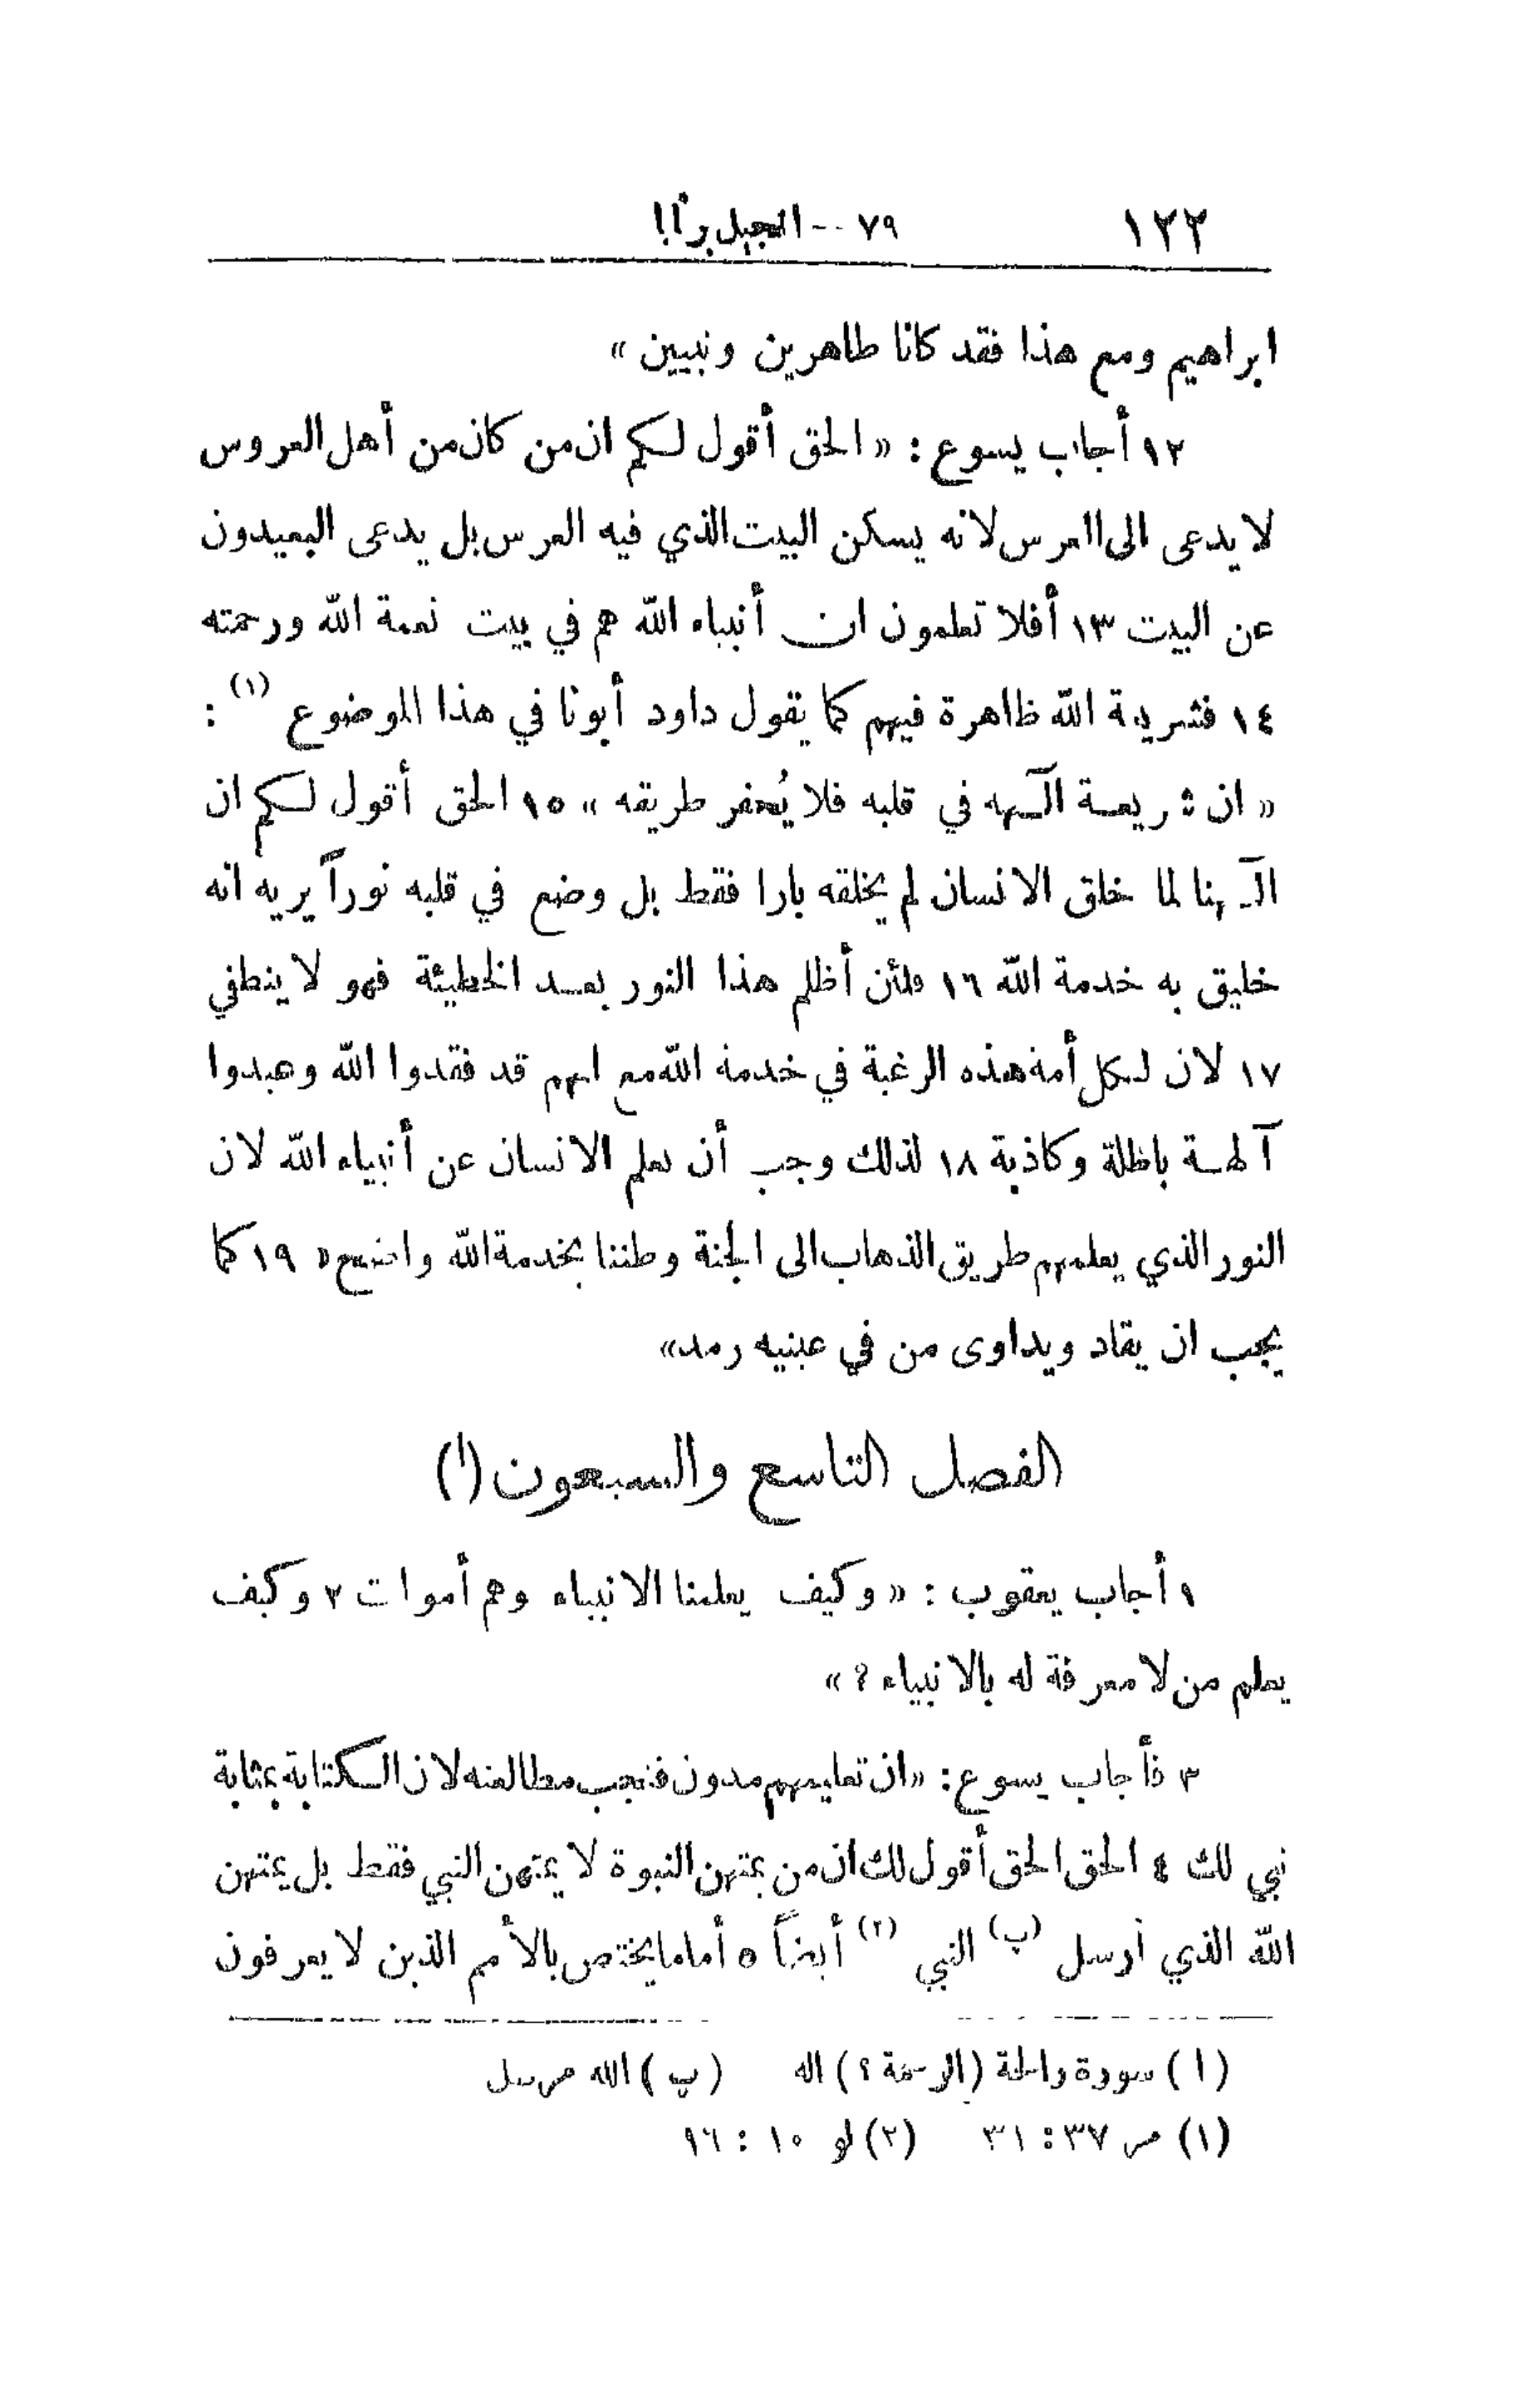 ١٢٢ ٧٩ -- انجيل برنابا
ابراهيم ومع هذا فقد كانا طاهرين ونبيين »
١٢ أجاب يسوع : « الحق أقول لكم ان من كان من أهل العروس
لا يدعى الى العرس لانه يسكن البيت الذي فيه العرس بل يدعى البعيدون
عن البيت ١٣ أفلا تعلمون ان أنبياء الله هم في بيت نعمة الله ورحمته
١٤ فشريعة الله ظاهرة فيهم كما يقول داود أبونا في هذا الموضوع (١) :
« ان شريعة الٓهه في قلبه فلا يُحفر طريقه » ١٥ الحق أقول لكم ان
الٓهنا لما خلق الانسان لم يخلقه بارا فقط بل وضع في قلبه نوراً يريه انه
خليق به خدمة الله ١٦ فلئن أظلم هذا النور بعد الخطيئة فهو لا ينطفي
١٧ لان لكل أمة هذه الرغبة في خدمة الله مع انهم قد فقدوا الله وعبدوا
آلهة باطلة وكاذبة ١٨ لذلك وجب أن يعلم الانسان عن أنبياء الله لان
النور الذي يعلمهم طريق الذهاب الى الجنة وطننا بخدمة الله واضح ١٩ كما
يجب ان يقاد ويداوى من في عينيه رمد»
الفصل التاسع والسبعون (ا)
١ أجاب يعقوب : « وكيف يعلمنا الانبياء وهم أموات ٢ وكيف
يعلم من لا معرفة له بالانبياء ؟ »
٣ فأجاب يسوع : « ان تعليمهم مدون فتجب مطالعته لان الكتابة بمثابة
نبي لك ٤ الحق الحق أقول لك ان من يمتهن النبوة لا يمتهن النبي فقط بل يمتهن
الله الذي أرسل (ب) النبي (٢) أيضاً ٥ أما ما يختص بالأمم الذين لا يعرفون
(ا) سورة والحة (الرحمة ؟) اله (ب) الله مرسل
(١) مز ٣٧ : ٣١ (٢) لو ١٠ : ١٦